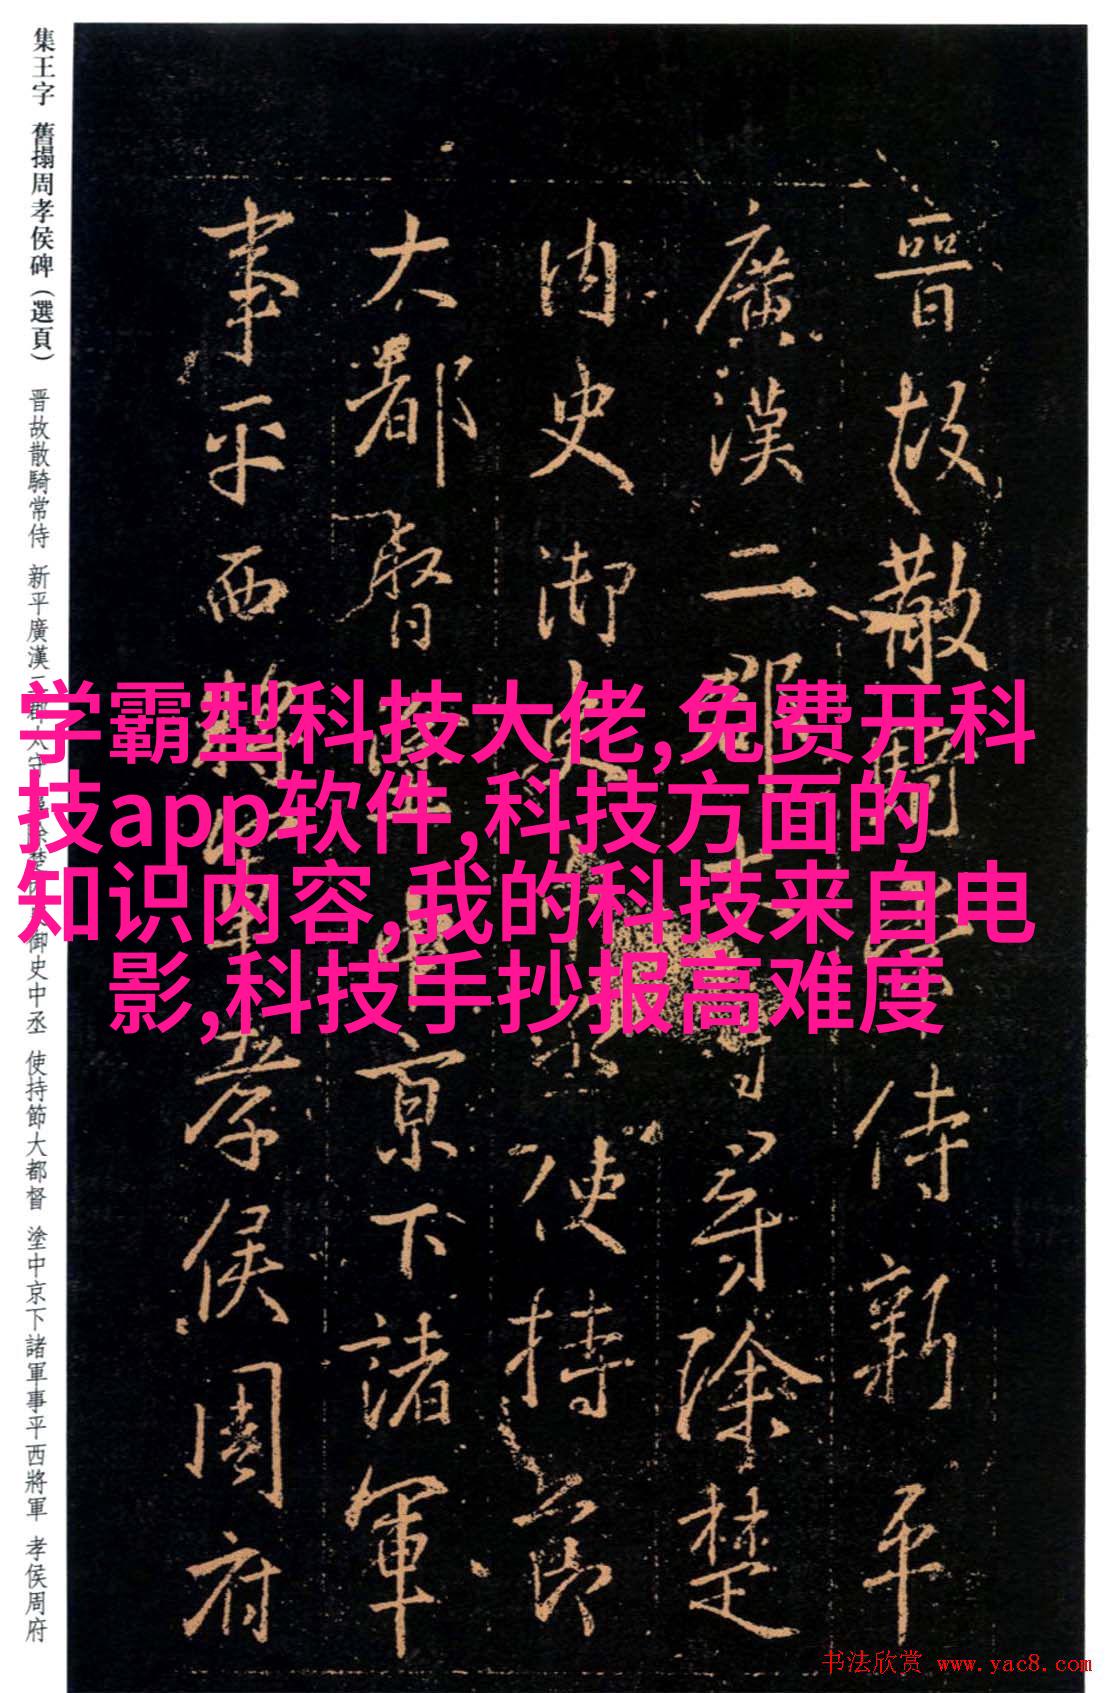 集王字 舊搨周孝侯碑（選頁） 晋故散騎常侍 新平廣漢 御史中丞 使持節大都督 塗中京下諸軍事平西將軍 孝侯周府
晉故散 侍新平
廣漢二郡 尋除楚
内史御史中丞使持節
大都督 京下諸軍
事平西將軍孝侯周府
学霸型科技大佬,免费开科
技app软件,科技方面的
知识内容,我的科技来自电
影,科技手抄报高难度
书法欣赏 www.yac8.com